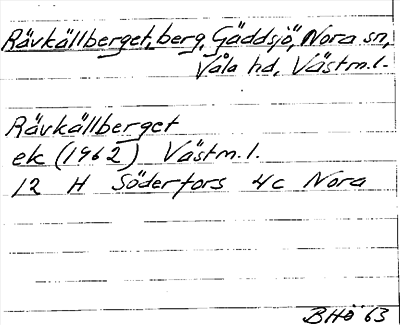 Rävkällberget, berg, Gäddsjö, Nora sn,
Våla hd, Västm.l.
Rävkällberget
ek (1962) Västm.l.
12 H Söderfors 4c Nora
BHö 63